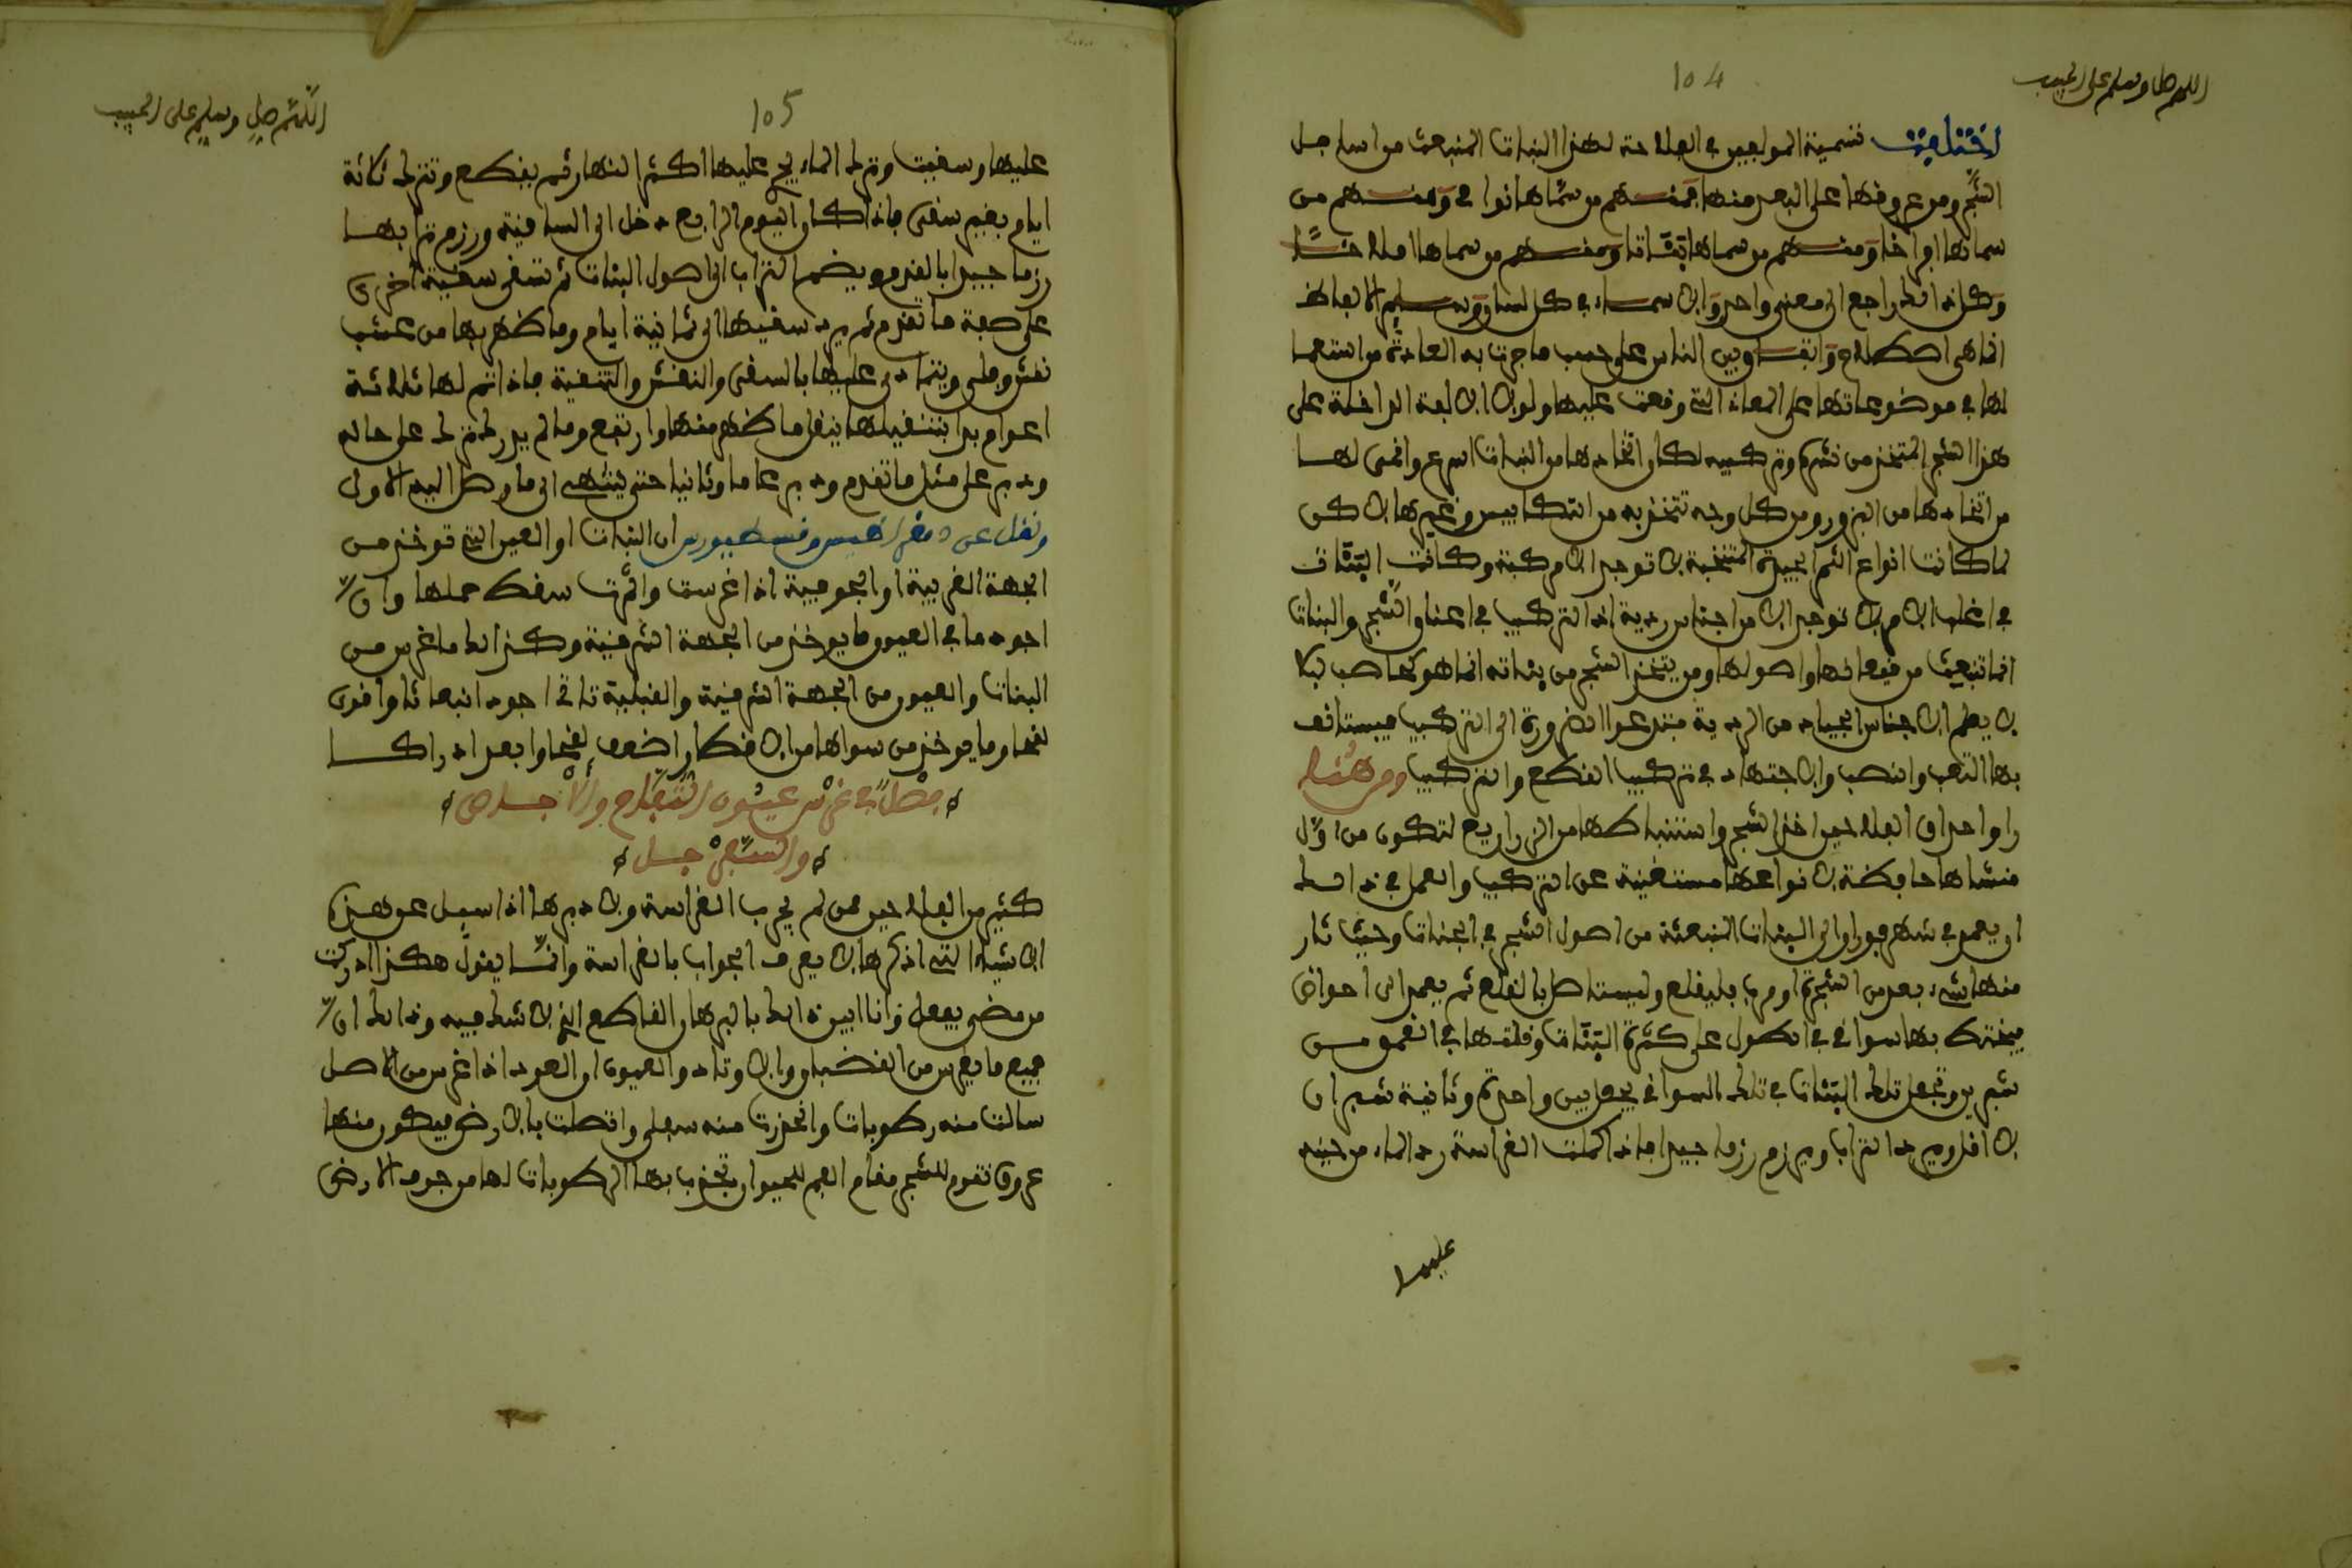 104
اللهم صل وسلم على الحبيب
اختلفت تسمية المولعين في الفلاحة لهذا النبات المنبعث من اسافل
الشجر ومن عروقها على البعد منها فمنهم من سماها نوامي ومنهم من
سماها افراخا ومنهم من سماها نقاتا ومنهم من سماها املاخا
وكل ذلك راجع الى معنى واحد والاسماء في كل لسان وتسليم الالفاظ
انما هي اصطلاح واتفاق بين الناس على حسب ما جرت به العادة من استعما
لها في موضوعاتها على المعاني التي وقعت عليها ولولا الافة الداخلة على
هذا الشجر المتخذ من نشره وتركيبه لكان اتخاذها من النبات اسرع وانمى لها
من اتخاذها من البزور ومن كل وجه تتخذ به من التكابيس وغيرها لاكن
لما كانت انواع الثمر الجيدة المنتخبة لا توجد الا مركبة وكانت النبات
في اغلب الامر لا توجد الا من اجناس ردية اذ التركيب في اعناق الشجر والنبات
انما تنبعث من قيعانها واصولها ومن يتخذ الشجر من نباته انما هو كحاطب ليلا
لا يعلم الاجناس الجياد من الردية فتدعوا الضرورة الى التركيب فيستانف
بها التعب والنصب والاجتهاد في تركيب القطع والتركيب ومن هنا
راوا حذاق الفلاحين اخذ الشجر واستنباطها من الزراريع لتكون من اول
منشاها حافظة لانواعها مستغنية عن التركيب والعمل في ذلك
ان يعمد في شهر فبراير الى النبات المنبعثة من اصول الشجر في الجنات وحيث ثار
منها شيء بعد من الشجرة او قرب فليقلع وليستاصل بالقلع ثم يعمد الى احواض
فيختط بها سواقي في الطول على كثرة النبات وقلتها في العمق من
شبرين وتجعل تلك النبات في تلك السواقي يجعل بين واحدة وثانية شبران
لا اقل ويرد التراب ويرزم رزما جيدا فاذا كملت الغراسة رد الماء من حينه
عليها
105
اللهم صل وسلم على الحبيب
عليها وسقيت وترك الماء يجري عليها اكثر النهار ثم يقطع وتترك ثلاثة
ايام بغير سقي فاذا كان اليوم الرابع دخل الى الساقية ورزم ترابها
رزما جيدا بالقدم ويضم التراب الى اصول النبات ثم تسقى سقية اخرى
على صفة ما تقدم ثم يرد سقيها الى ثمانية ايام وما ظهر بها من عشب
نقش وجلي ويتمادى عليها بالسقي والنقش والتنقية فاذا تم لها ثلاثة
اعوام بدا بتنقيلها ينقل ما ظهر منها وارتفع وما لم يدرك ترك على حاله
ودبر على مثل ما تقدم ودبر عاما وثانيا حتى ينتهي الى ما وصل اليه الاول
ونقل عن دمقراطيس وقسطوس ان النبات او العين التي توخذ من
الجهة الغربية او الجوفية اذا غرست واثمرت سقط حملها وان
اجود ما في العيون ما يوخذ من الجهة الشرقية وكذلك ما غرس من
النبات والعيون من الجهة الشرقية والقبلية تاتي اجود انبعاثا واقوى
لقحا وما يوخذ من سواها من الاقطار اضعف لقحا وابعد ادراكا
مطلب في غرس عيون التفاح والاجاص
والسفرجل
كثير من الفلاحين ممن لم يجرب الغراسة ولا دبرها اذا سيل عن هذه
الاشياء التي اذكرها لا يعرف الجواب بالغراسة وانما يقول هكذا ادركت
من مضى يفعل وانا ابين ذلك بالبرهان القاطع الذي لا شك فيه وذلك ان
جميع ما يغرس من القضبان والاوتاد والعيون او العود اذا غرس من الاصل
سالت منه رطوبات وانحدرت منه سفلى واتصلت بالارض فيكون منها
عروق تقوم للشجر مقام الفم للحيوان تجذب بها الرطوبات لها من جوف الارض